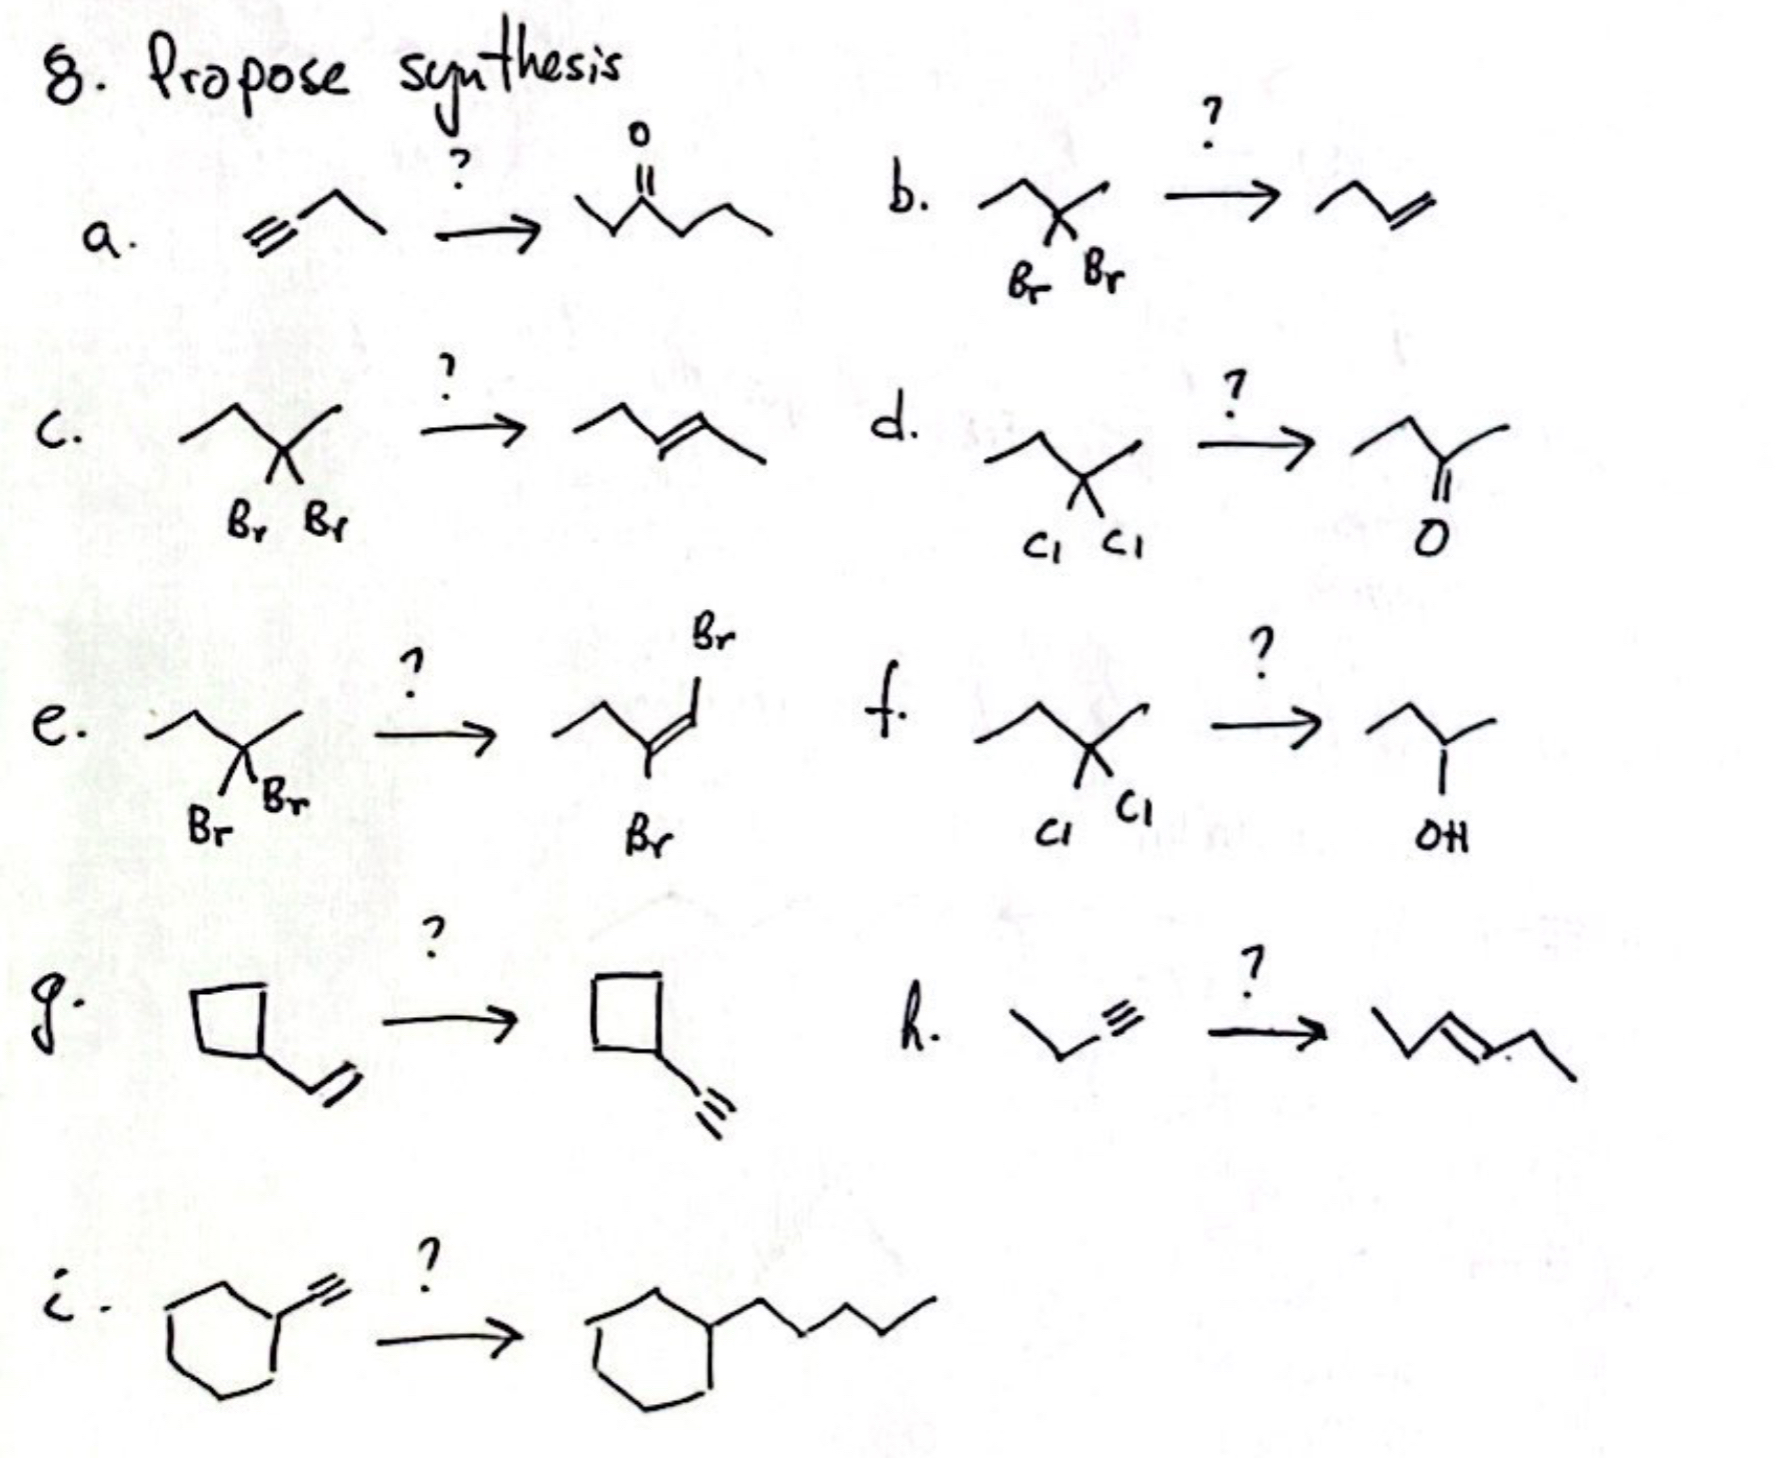 8. Propose synthesis
a. ? O
b. ? Br Br
c. ? Br Br
d. ? Cl Cl O
e. ? Br Br Br Br
f. ? Cl Cl OH
g. ?
h. ?
i. ?